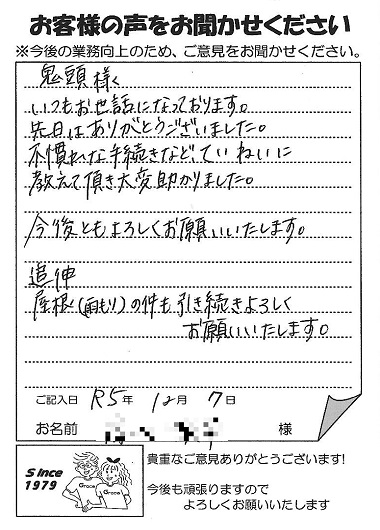 お客様の声をお聞かせください
※今後の業務向上のため、ご意見をお聞かせください。
鬼頭様
いつもお世話になっております。
先日はありがとうございました。
不慣れな手続きなど、ていねいに
教えて頂き大変助かりました。
今後ともよろしくお願いいたします。
追伸
屋根(雨もり)の件も引き続きよろしく
お願いいたします。
ご記入日 R5年 12月 7日
お名前 様
Since
1979
Grace
Grace
貴重なご意見ありがとうございます!
今後も頑張りますので
よろしくお願いいたします